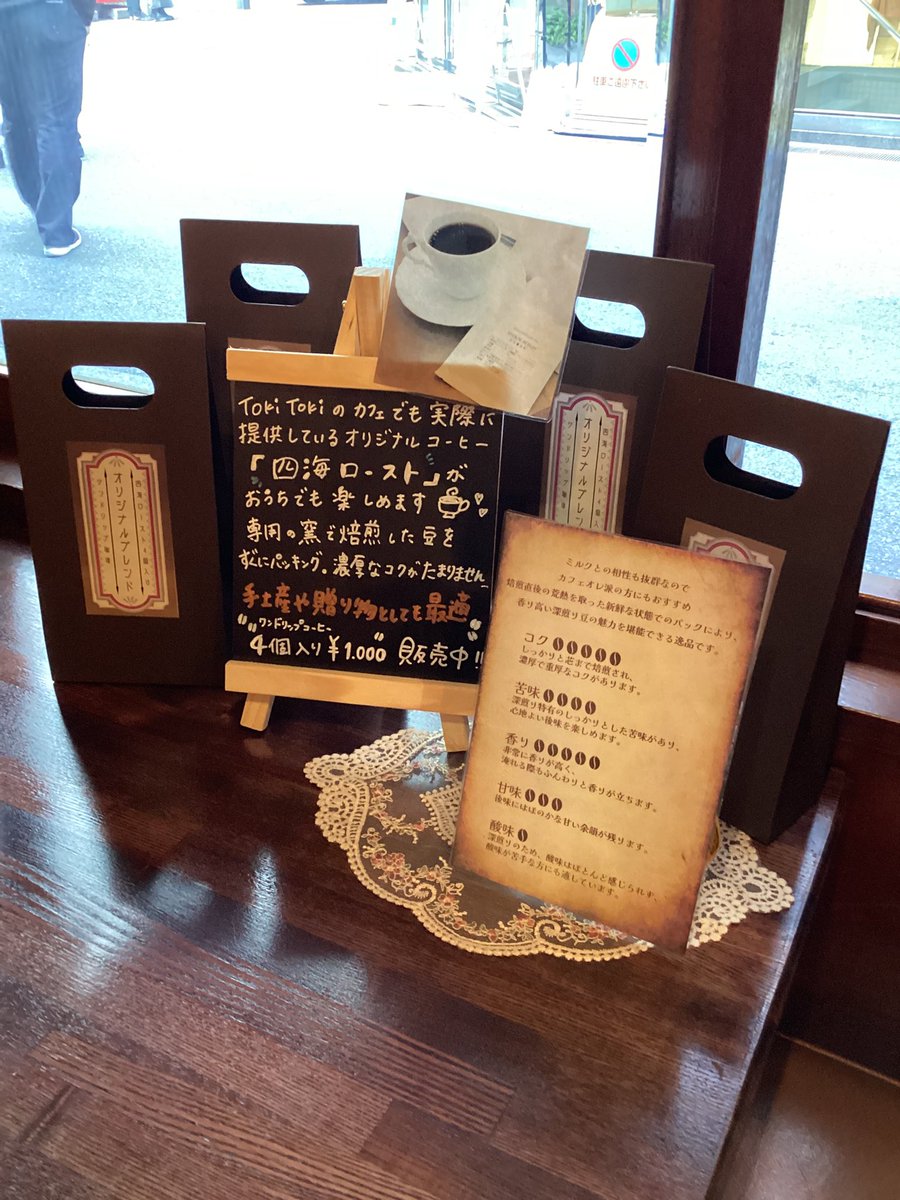 駐車ご遠慮下さい
Toki Tokiのカフェでも実際に
提供しているオリジナルコーヒー
「四海ロースト」が
おうちでも楽しめます
専用の窯で焙煎した豆を
すぐにパッキング。濃厚なコクがたまりません
手土産や贈り物としても最適
"ワンドリップコーヒー"
4個入り¥1.000 販売中!!
四海ロースト4個入り
オリジナルブレンド
ワンドリップ珈琲
四海ロースト4個入り
オリジナルブレンド
ワンドリップ珈琲
ミルクとの相性も抜群なので
カフェオレ派の方にもおすすめ
焙煎直後の荒熱を取った新鮮な状態でのパックにより、
香り高い深煎り豆の魅力を堪能できる逸品です。
コク
しっかりと芯まで焙煎され、
濃厚で重厚なコクがあります。
苦味
深煎り特有のしっかりとした苦味があり、
心地よい後味を楽しめます。
香り
非常に香りが高く、
淹れる際もふんわりと香りが立ちます。
甘味
後味にはほのかな甘い余韻が残ります。
酸味
深煎りのため、酸味はほとんど感じられず、
酸味が苦手な方にも適しています。